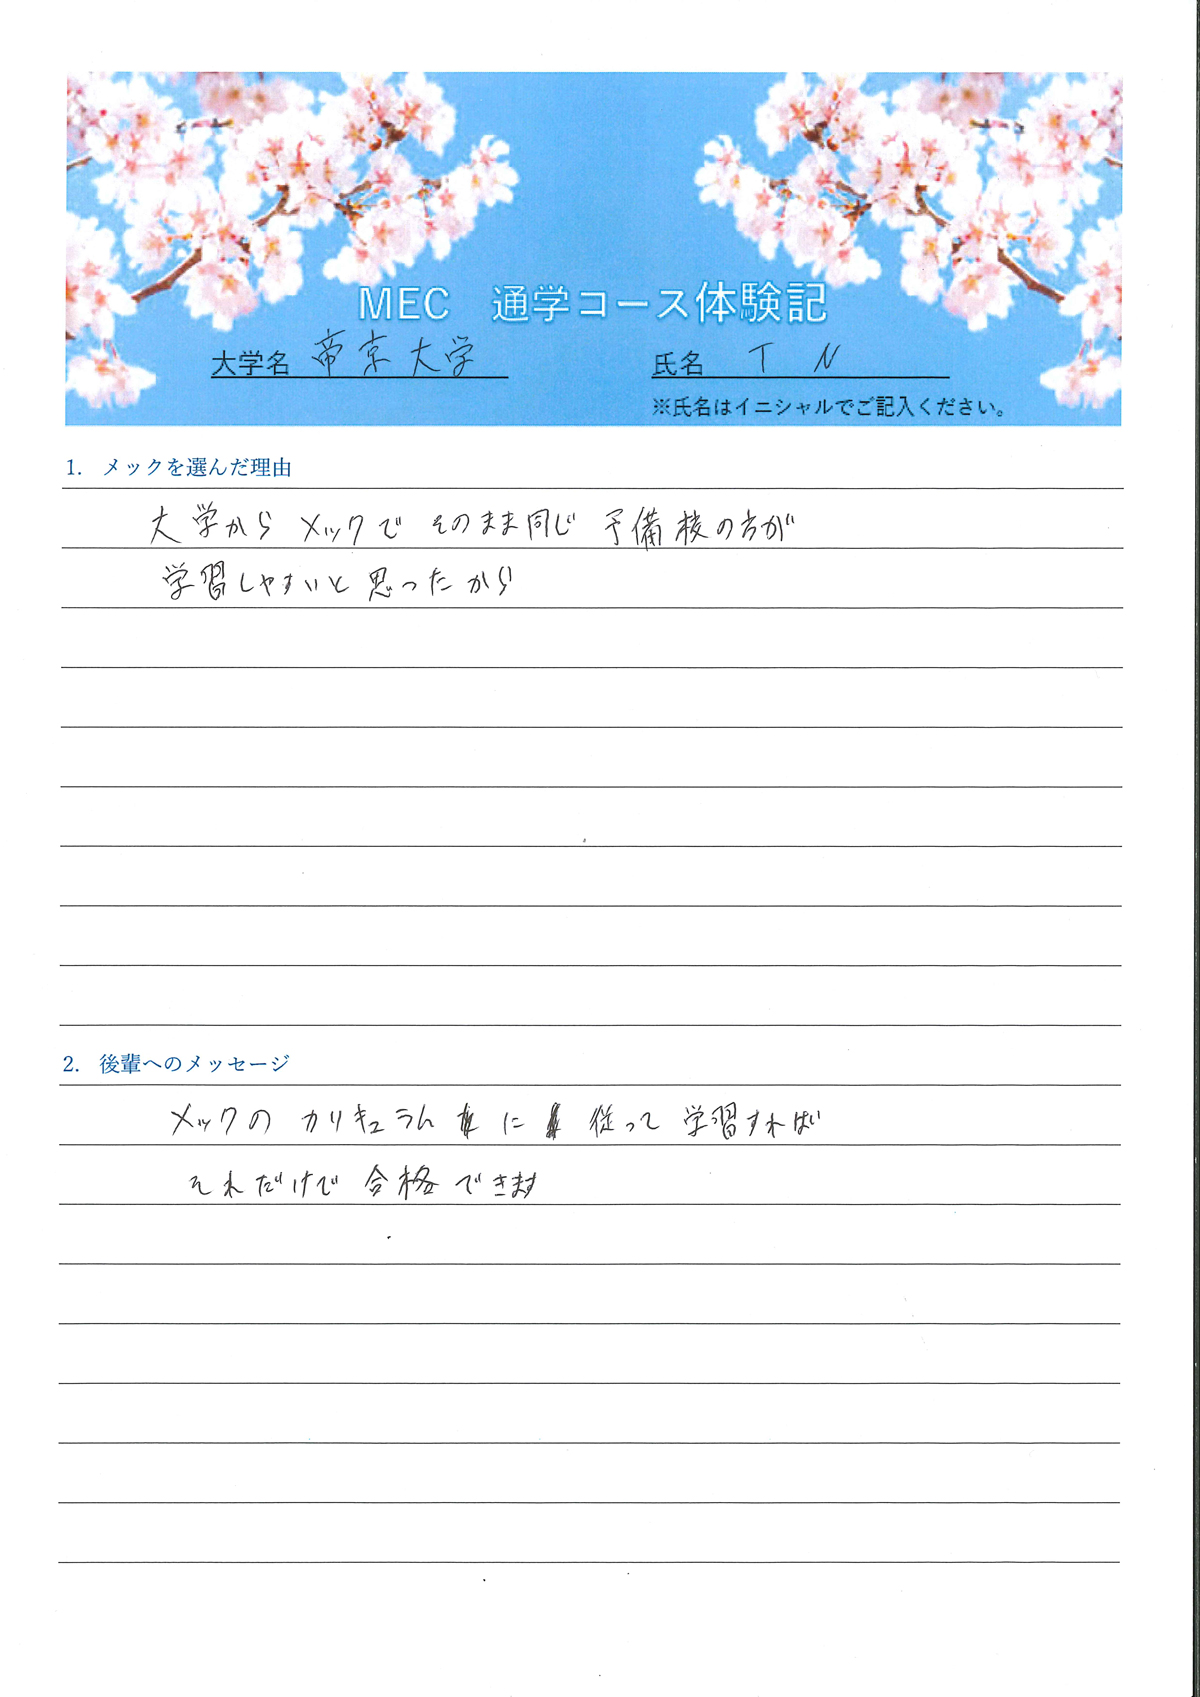 MEC 通学コース体験記
大学名 帝京大学 氏名 T N
※氏名はイニシャルでご記入ください。
1. メックを選んだ理由
大学からメックでそのまま同じ予備校の方が
学習しやすいと思ったから
2. 後輩へのメッセージ
メックのカリキュラムに従って学習すれば
それだけで合格できます